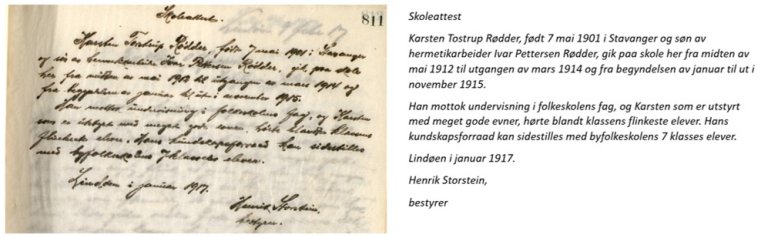 811
Skoleattest.
Karsten Tostrup Rødder, født 7 mai 1901 i Stavanger
og søn av hermetikarbeider Ivar Pettersen Rødder, gik paa skole
her fra midten av mai 1912 til utgangen av mars 1914 og
fra begyndelsen av januar til ut i november 1915.
Han mottok undervisning i folkeskolens fag, og Karsten
som er utstyrt med meget gode evner, hørte blandt klassens
flinkeste elever. Hans kundskapsforraad kan sidestilles
med byfolkeskolens 7 klasses elever.
Lindøen i januar 1917.
Henrik Storstein,
bestyrer.
Skoleattest
Karsten Tostrup Rødder, født 7 mai 1901 i Stavanger og søn av
hermetikarbeider Ivar Pettersen Rødder, gik paa skole her fra midten av
mai 1912 til utgangen av mars 1914 og fra begyndelsen av januar til ut i
november 1915.
Han mottok undervisning i folkeskolens fag, og Karsten som er utstyrt
med meget gode evner, hørte blandt klassens flinkeste elever. Hans
kundskapsforraad kan sidestilles med byfolkeskolens 7 klasses elever.
Lindøen i januar 1917.
Henrik Storstein,
bestyrer